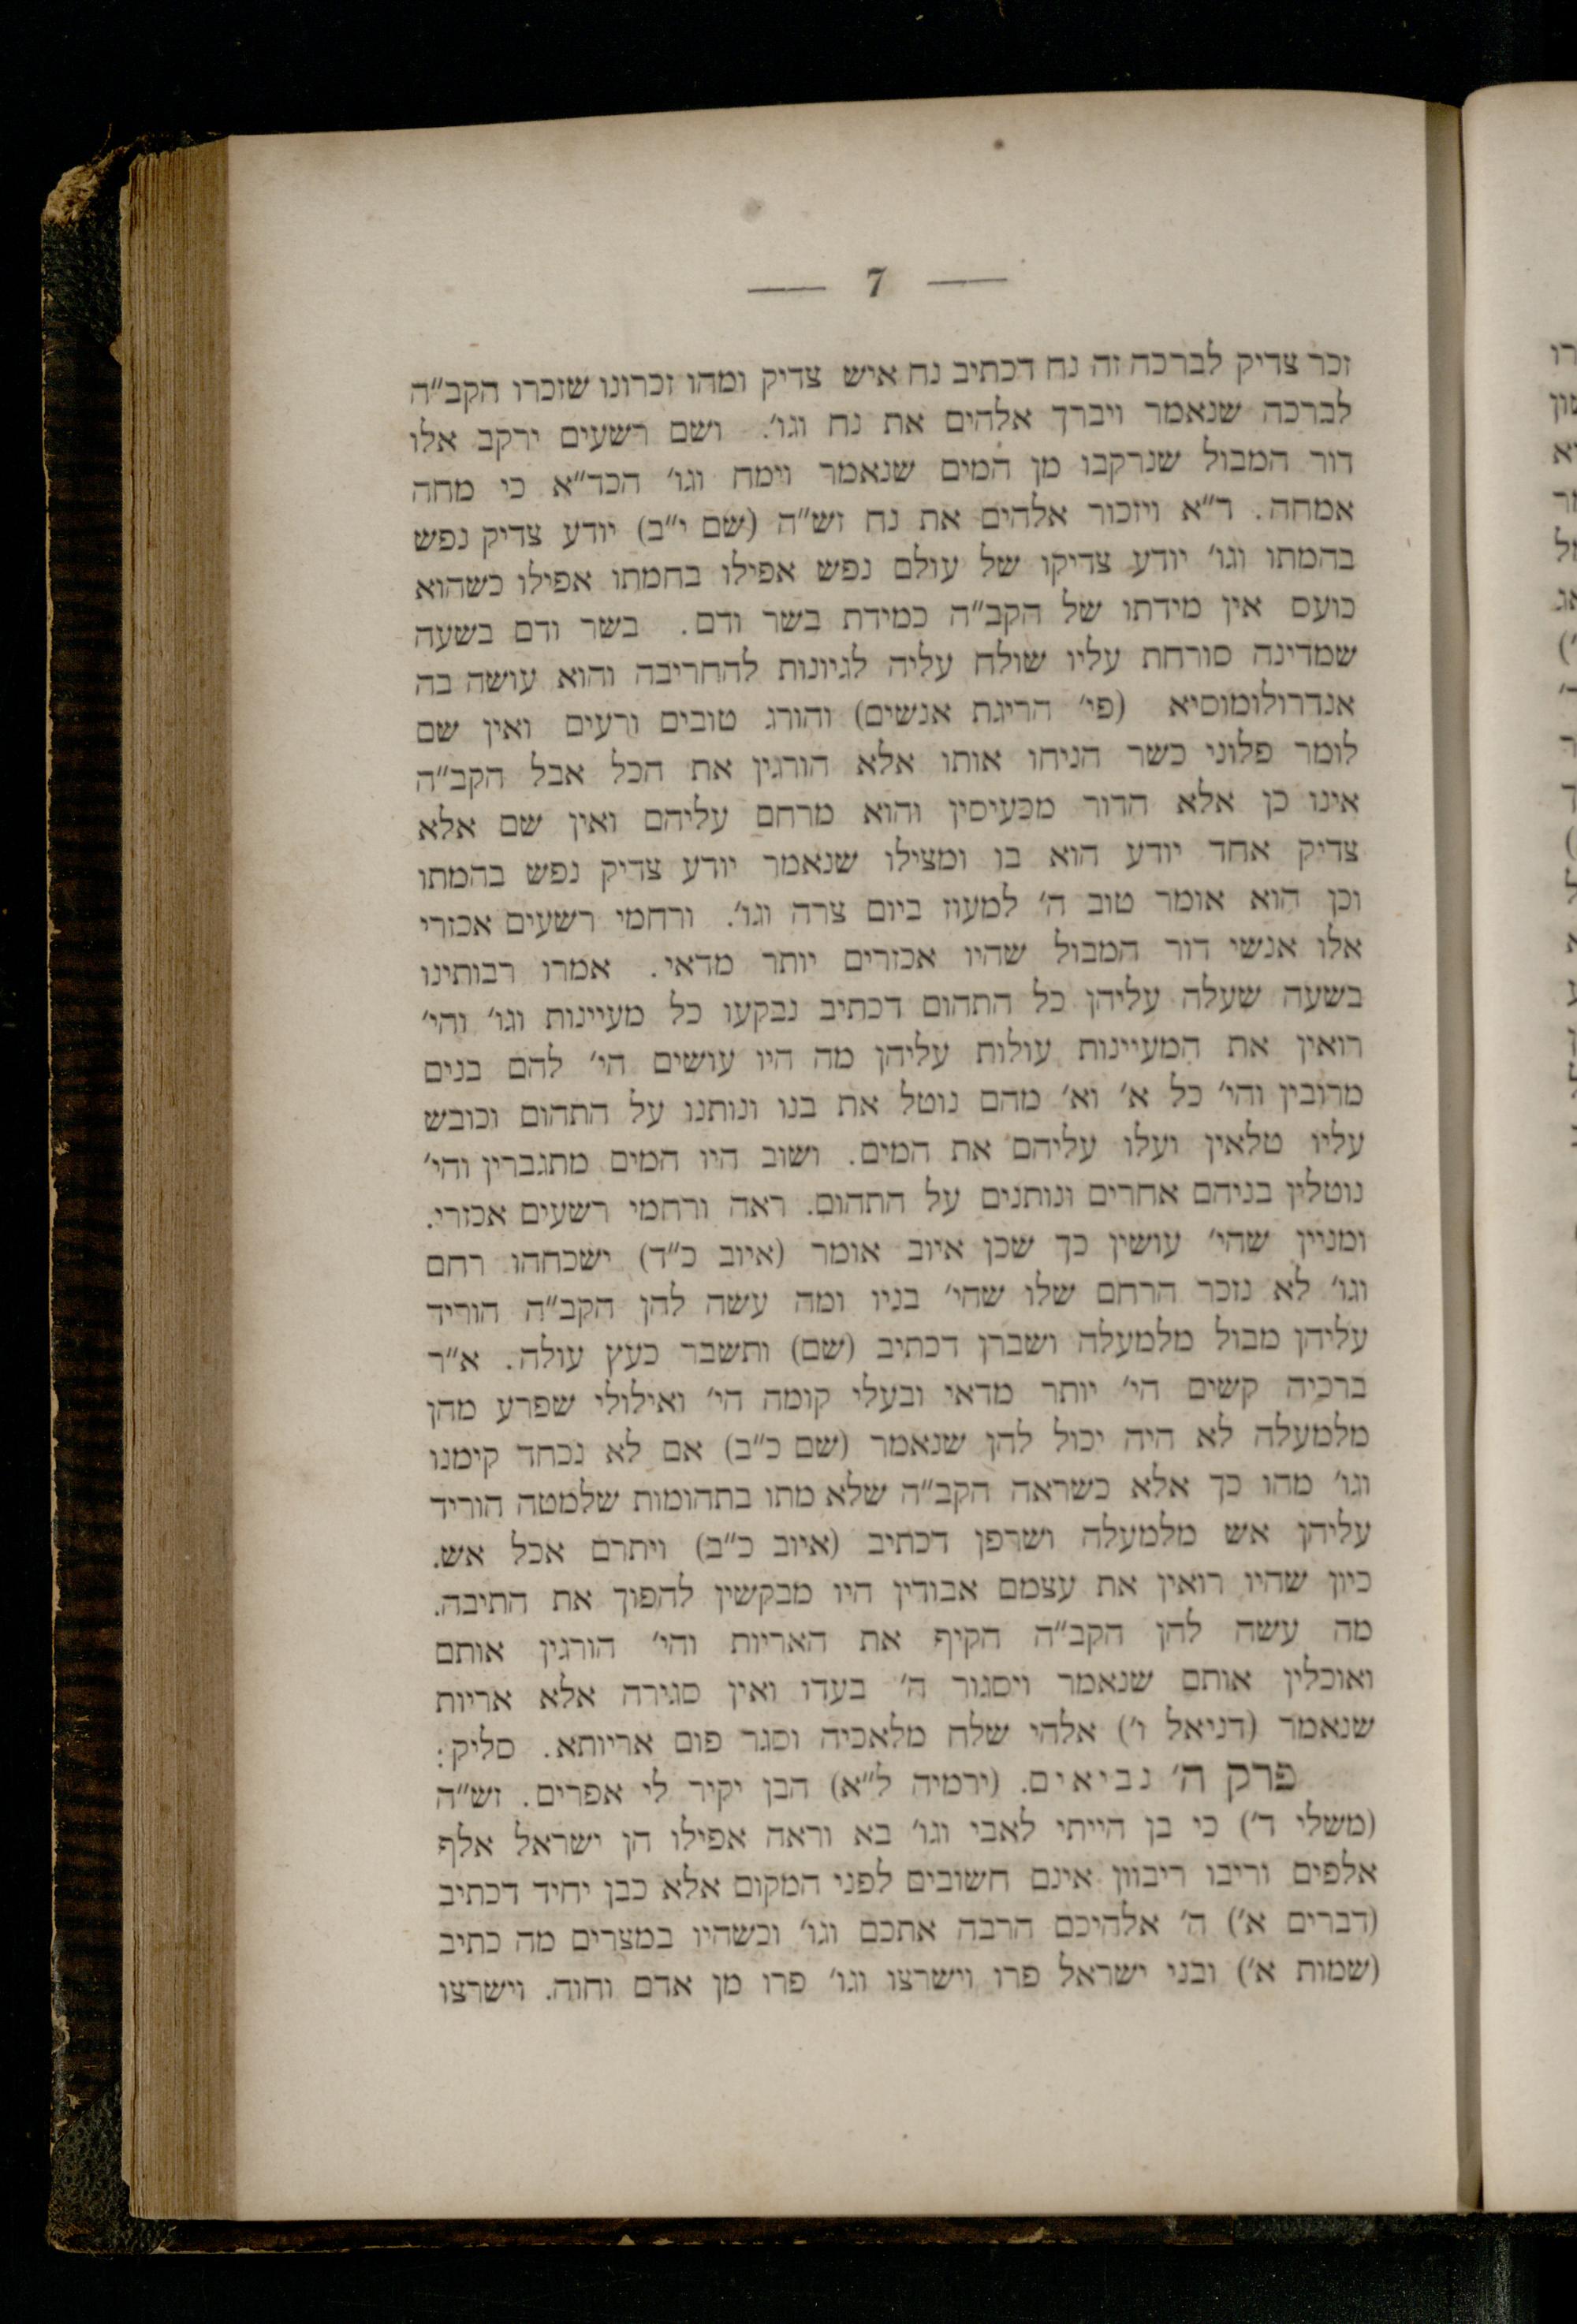 — 7 —
זכר צדיק לברכה זה נח דכתיב נח איש צדיק ומהו זכרונו שזכרו הקב״ה
לברכה שנאמר ויברך אלהים את נח וגו׳. ושם רשעים ירקב אלו
דור המבול שנרקבו מן המים שנאמר וימח וגו׳ הכד״א כי מחה
אמחה. ד״א ויזכור אלהים את נח זש״ה (שם י״ב) יודע צדיק נפש
בהמתו וגו׳ יודע צדיקו של עולם נפש אפילו בחמתו אפילו כשהוא
כועס אין מידתו של הקב״ה כמידת בשר ודם. בשר ודם בשעה
שמדינה סורחת עליו שולח עליה לגיונות להחריבה והוא עושה בה
אנדרולומוסיא (פי׳ הריגת אנשים) והורג טובים ורעים ואין שם
לומר פלוני כשר הניחו אותו אלא הורגין את הכל אבל הקב״ה
אינו כן אלא הדור מכעיסין והוא מרחם עליהם ואין שם אלא
צדיק אחד יודע הוא בו ומצילו שנאמר יודע צדיק נפש בהמתו
וכן הוא אומר טוב ה׳ למעוז ביום צרה וגו׳. ורחמי רשעים אכזרי
אלו אנשי דור המבול שהיו אכזרים יותר מדאי. אמרו רבותינו
בשעה שעלה עליהן כל התהום דכתיב נבקעו כל מעיינות וגו׳ והי׳
רואין את המעיינות עולות עליהן מה היו עושים הי׳ להם בנים
מרובין והי׳ כל א׳ וא׳ מהם נוטל את בנו ונותנו על התהום וכובש
עליו טלאין ועלו עליהם את המים. ושוב היו המים מתגברין והי׳
נוטלין בניהם אחרים ונותנים על התהום. ראה ורחמי רשעים אכזרי.
ומניין שהי׳ עושין כך שכן איוב אומר (איוב כ״ד) ישכחהו רחם
וגו׳ לא נזכר הרחם שלו שהי׳ בניו ומה עשה להן הקב״ה הוריד
עליהן מבול מלמעלה ושברן דכתיב (שם) ותשבר כעץ עולה. א״ר
ברכיה קשים הי׳ יותר מדאי ובעלי קומה הי׳ ואילולי שפרע מהן
מלמעלה לא היה יכול להן שנאמר (שם כ״ב) אם לא נכחד קימנו
וגו׳ מהו כך אלא כשראה הקב״ה שלא מתו בתהומות שלמטה הוריד
עליהן אש מלמעלה ושרפן דכתיב (איוב כ״ב) ויתרם אכל אש.
כיון שהיו רואין את עצמם אבודין היו מבקשין להפוך את התיבה.
מה עשה להן הקב״ה הקיף את האריות והי׳ הורגין אותם
ואוכלין אותם שנאמר ויסגור ה׳ בעדו ואין סגירה אלא אריות
שנאמר (דניאל ו׳) אלהי שלח מלאכיה וסגר פום אריותא. סליק:
פרק ה׳ נביאים. (ירמיה ל״א) הבן יקיר לי אפרים. זש״ה
(משלי ד׳) כי בן הייתי לאבי וגו׳ בא וראה אפילו הן ישראל אלף
אלפים וריבו ריבוון אינם חשובים לפני המקום אלא כבן יחיד דכתיב
(דברים א׳) ה׳ אלהיכם הרבה אתכם וגו׳ וכשהיו במצרים מה כתיב
(שמות א׳) ובני ישראל פרו וישרצו וגו׳ פרו מן אדם וחוה. וישרצו